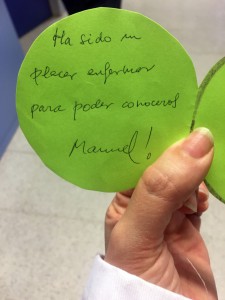 Ha sido un
placer enfermar
para poder conoceros
Manuel!